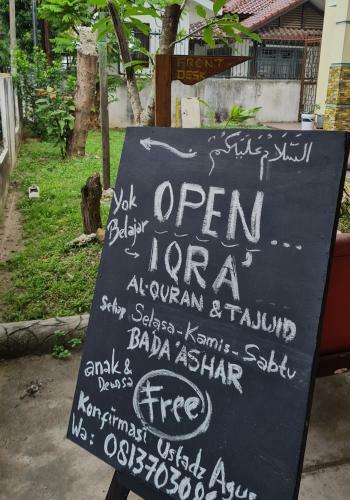 FRONT
DESK
السَّلَامُ عَلَيْكُمْ
OPEN...
Yok
Belajar
IQRA'
AL-QURAN & TAJWID
Setiap Selasa-Kamis-Sabtu
BADA'ASHAR
anak &
Dewasa
Free
Konfirmasi Ustadz Agus
Wa: 0813703006